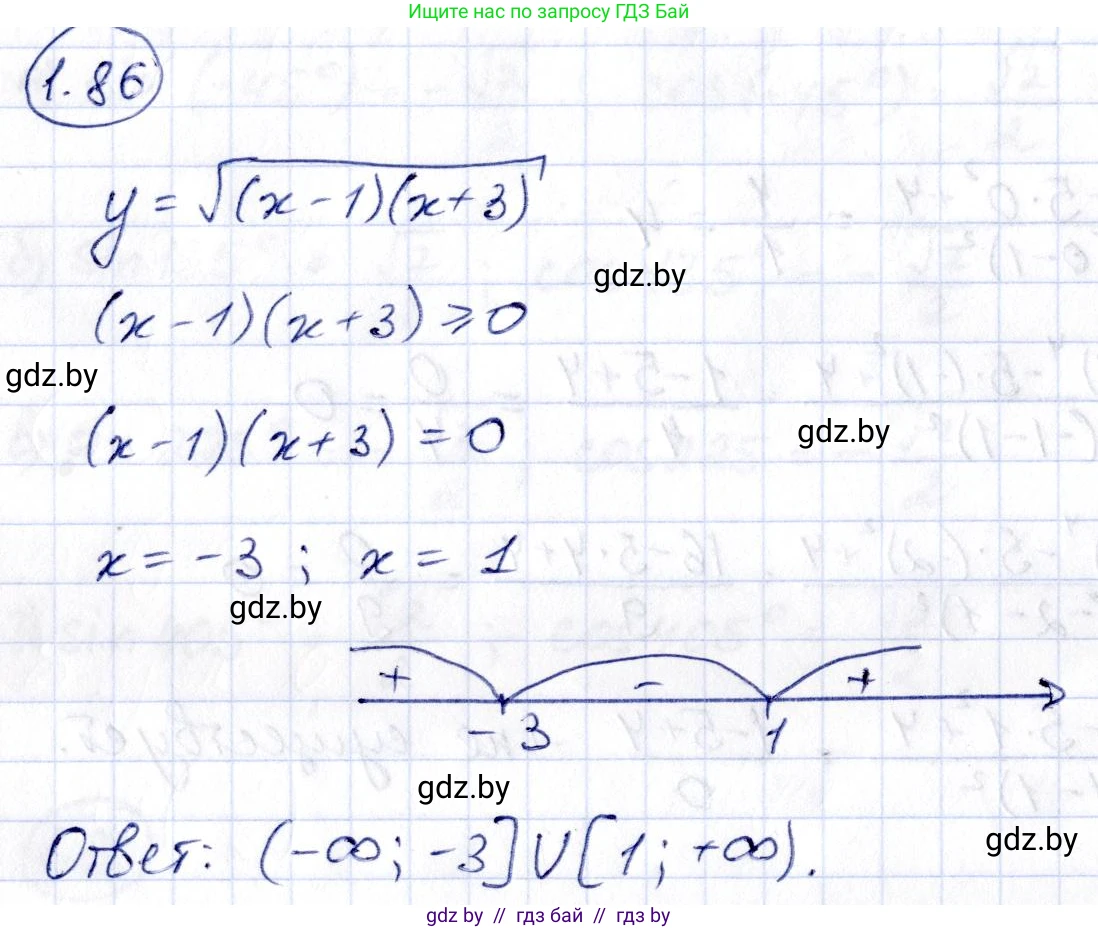 Ищите нас по запросу ГДЗ Бай
1.86
y = √((x - 1)(x + 3))
gdz.by
(x - 1)(x + 3) ⩾ 0
gdz.by
(x - 1)(x + 3) = 0
gdz.by
x = -3 ; x = 1
gdz.by
+ - +
-3 1
gdz.by
Ответ: (-∞; -3] U [1; +∞).
gdz.by
gdz by // гдз бай // гдз by